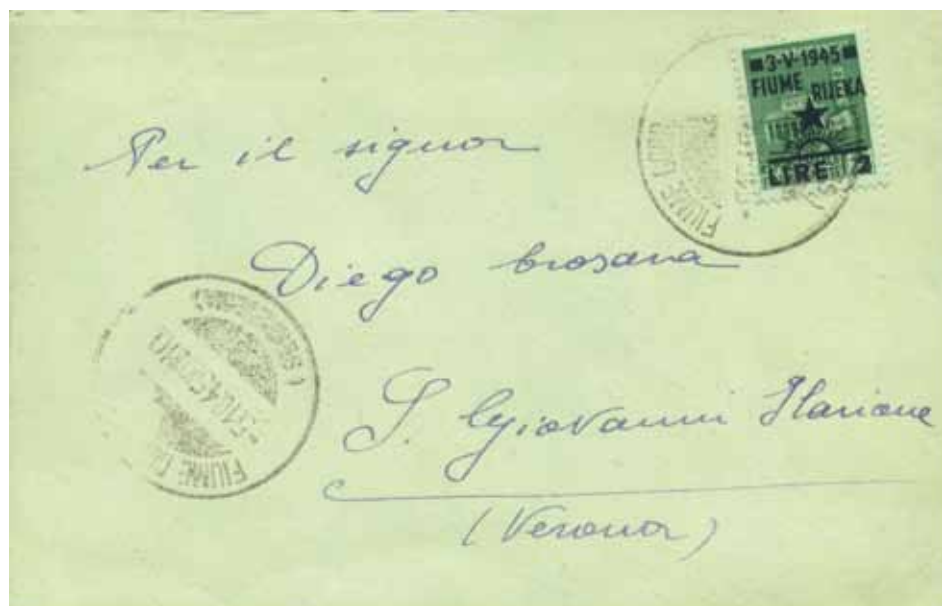 3-V-1945
FIUME RIJEKA
LIRE 2
FIUME
Per il signor
Diego Crosara
S. Giovanni Ilarione
(Verona)
FIUME